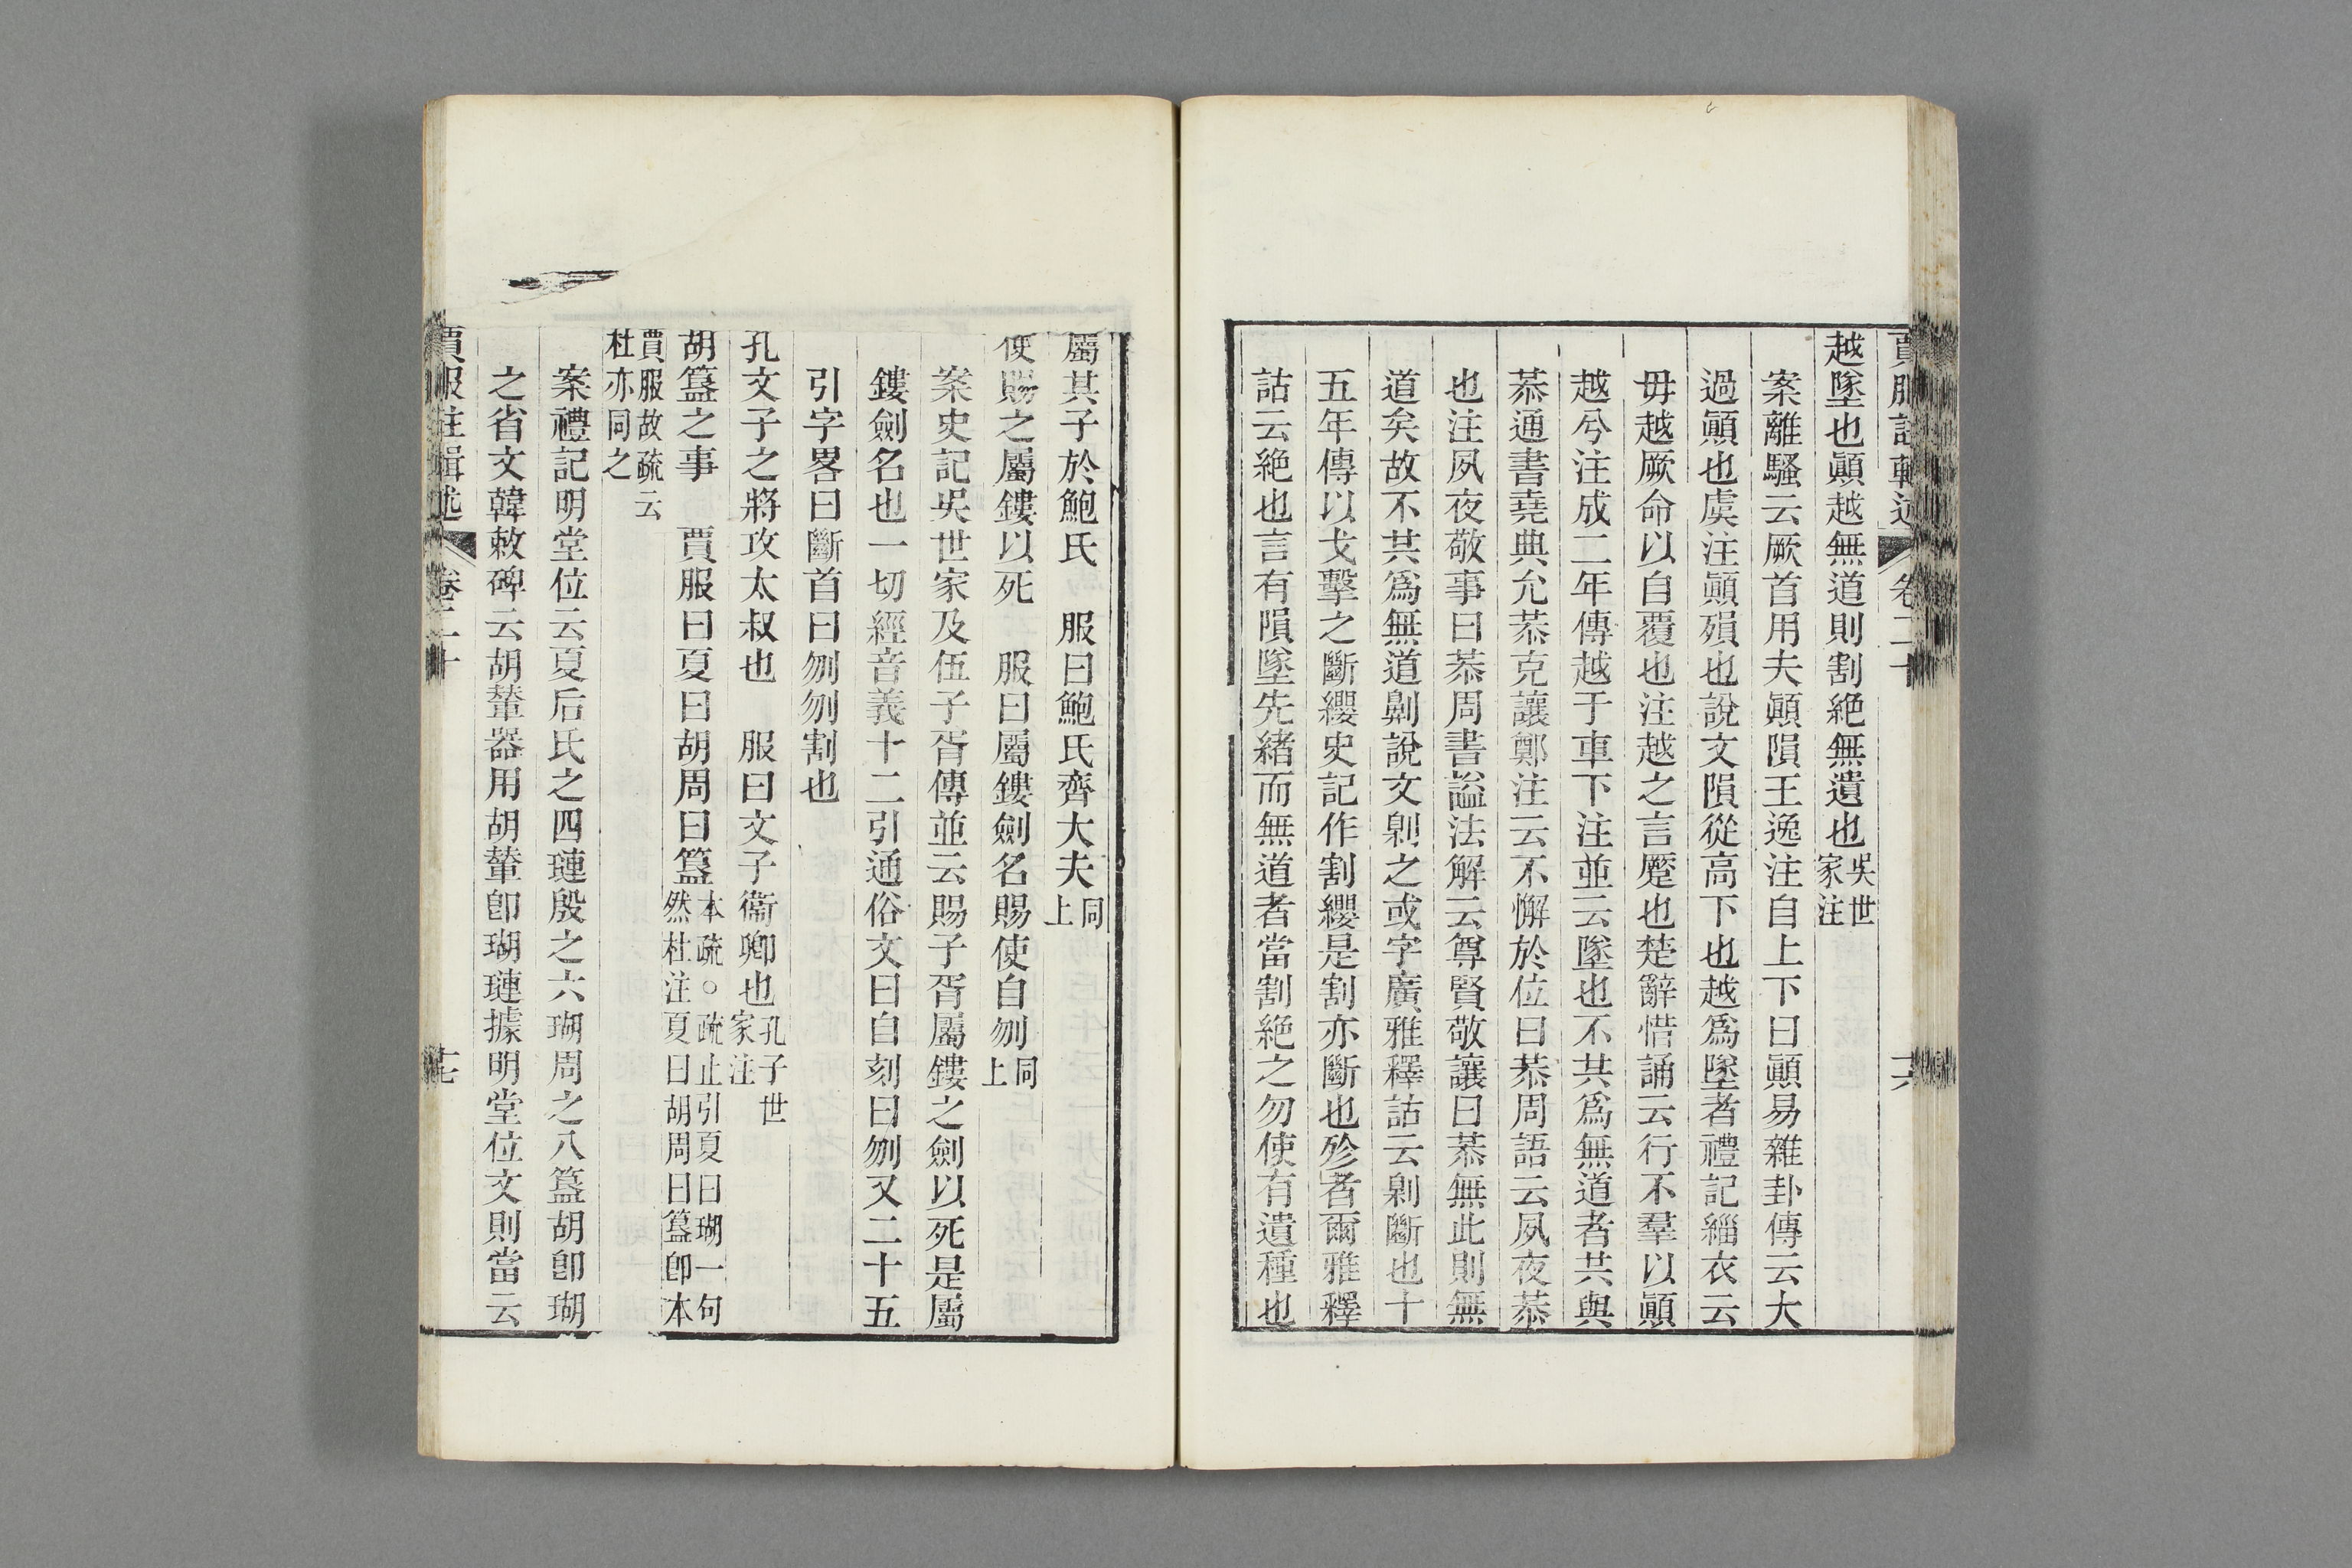 賈服注輯述 卷二十 十六
越墜也顚越無道則割絶無遺也吳世家注
案離騷云厥首用夫顚隕王逸注自上下曰顚易雜卦傳云大
過顚也虞注顚殞也說文隕從高下也越爲墜者禮記緇衣云
毋越厥命以自覆也注越之言蹷也楚辭惜誦云行不羣以顚
越兮注成二年傳越于車下注並云墜也不共爲無道者共與
恭通書堯典允恭克讓鄭注云不懈於位曰恭周語云夙夜恭
也注夙夜敬事曰恭周書謚法解云尊賢敬讓曰恭無此則無
道矣故不共爲無道劓說文臬刂之或字廣雅釋詁云劓斷也十
五年傳以戈擊之斷纓史記作割纓是割亦斷也殄者爾雅釋
詁云絶也言有隕墜先緒而無道者當割絶之勿使有遺種也
屬其子於鮑氏　服曰鮑氏齊大夫同上
使賜之屬鏤以死　服曰屬鏤劍名賜使自刎同上
案史記吳世家及伍子胥傳並云賜子胥屬鏤之劍以死是屬
鏤劍名也一切經音義十二引通俗文曰自刻曰刎又二十五
引字畧曰斷首曰刎刎割也
孔文子之將攻太叔也　服曰文子衞卿也孔子世家注
胡簋之事　賈服曰夏曰胡周曰簋本疏○疏止引夏曰瑚一句然杜注夏曰胡周曰簋卽本
賈服故疏云杜亦同之
案禮記明堂位云夏后氏之四璉殷之六瑚周之八簋胡卽瑚
之省文韓敕碑云胡輦器用胡輦卽瑚璉據明堂位文則當云
賈服注輯述 卷二十 十七